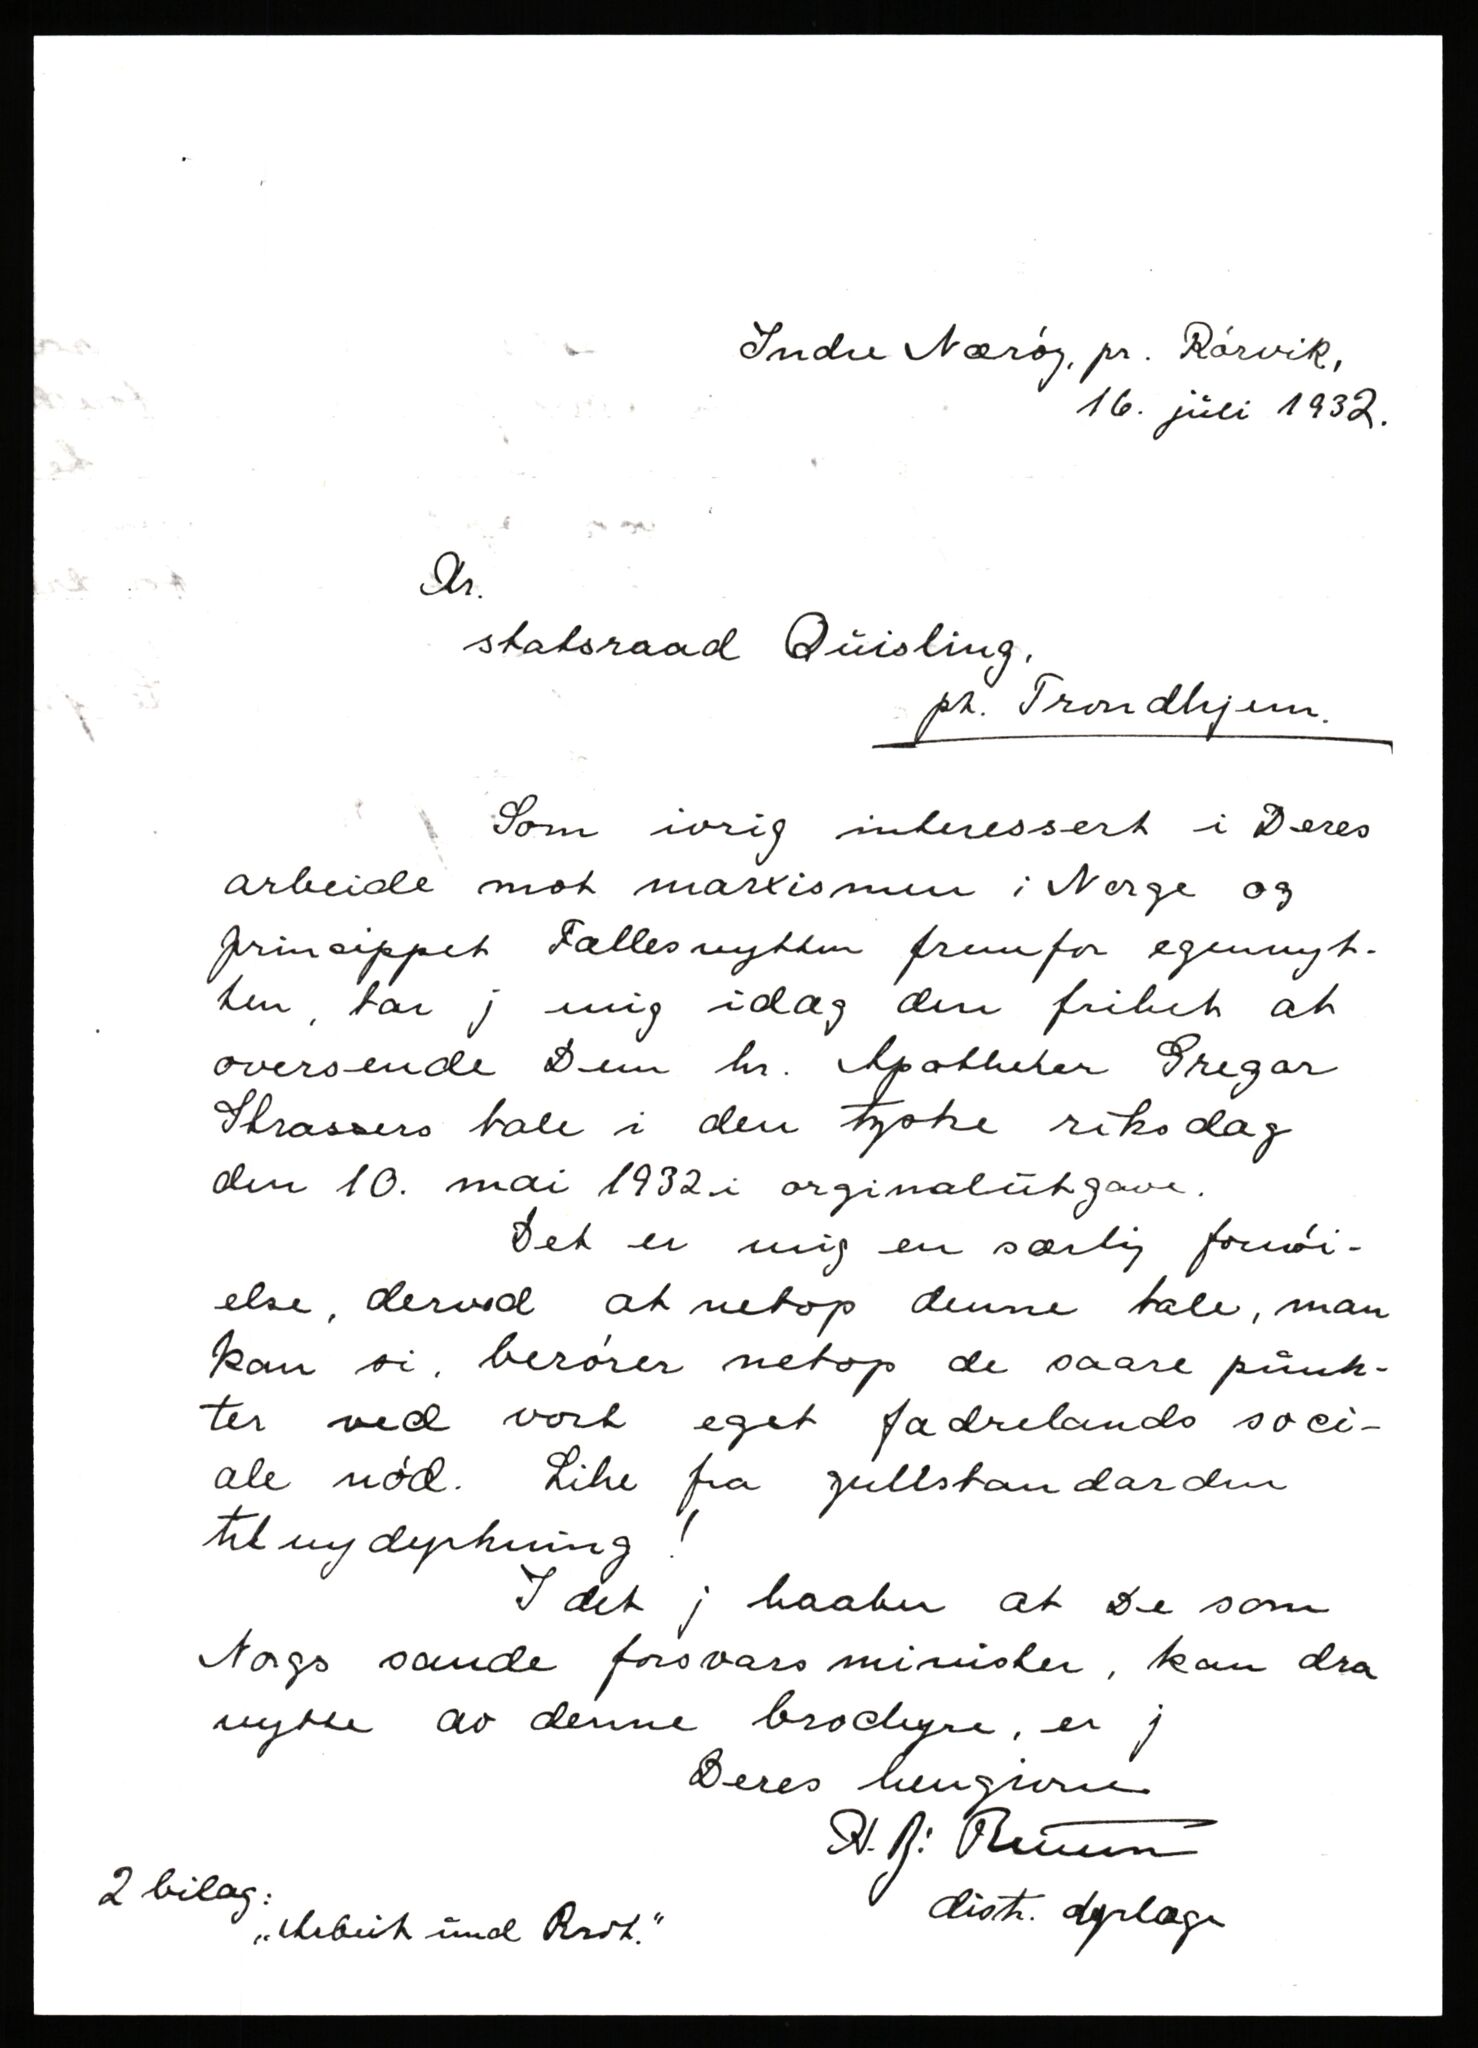 Indre Nærøy, pr. Rørvik,
16. juli 1932.
Hr.
statsraad Quisling,
pt. Trondhjem.
Som ivrig interessert i Deres
arbeide mot marxismen i Norge og
princippet Fællesnytten fremfor egennyt-
ten, tar j mig idag den frihet at
oversende Dem hr. Apotheker Gregor
Strassers tale i den tyske riksdag
den 10. mai 1932 i orginalutgave.
Det er mig en særlig fornøi-
else, derved at netop denne tale, man
kan si, berører netop de saare punk-
ter ved vort eget fædrelands soci-
ale nød. Like fra gullstandarden
til nydyrkning!
I det j haaber at De som
Norgs sande forsvarsminister, kan dra
nytte av denne brochyre, er j
Deres hengivne
H. Bj:
distr. dyrlæge
2 bilag:
„Arbeit und Brot."